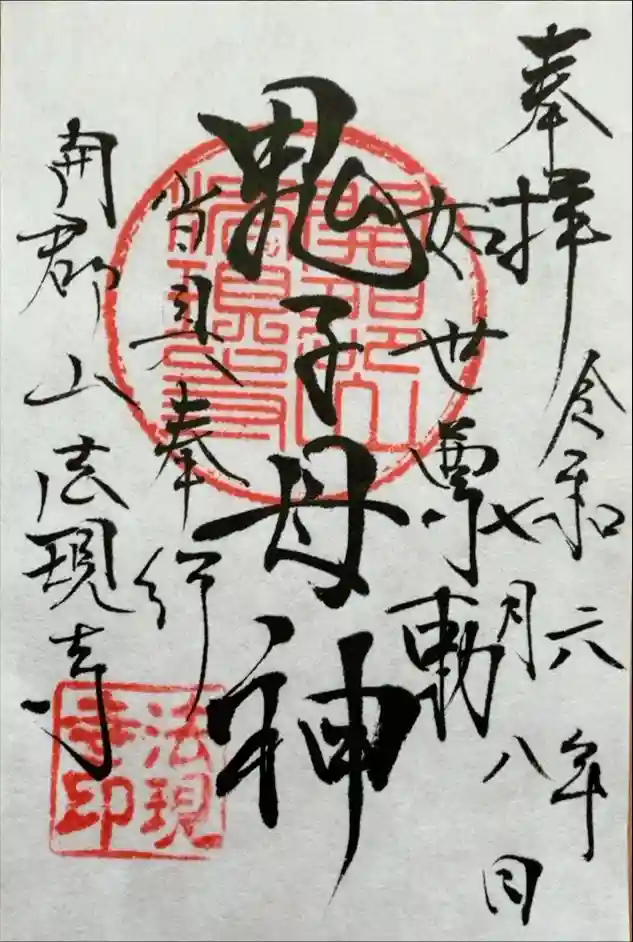 奉拝
令和六年
七月八日
如世尊勅
鬼子母神
皆具奉行
開郡山法現寺
法現
寺印